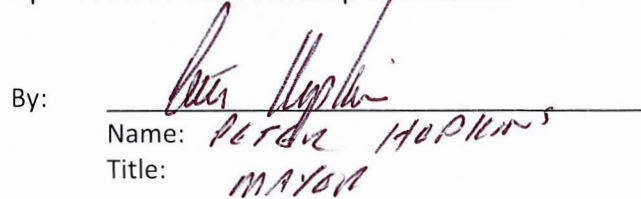 By: Peter Hopkins
Name: PETER HOPKINS
Title: MAYOR